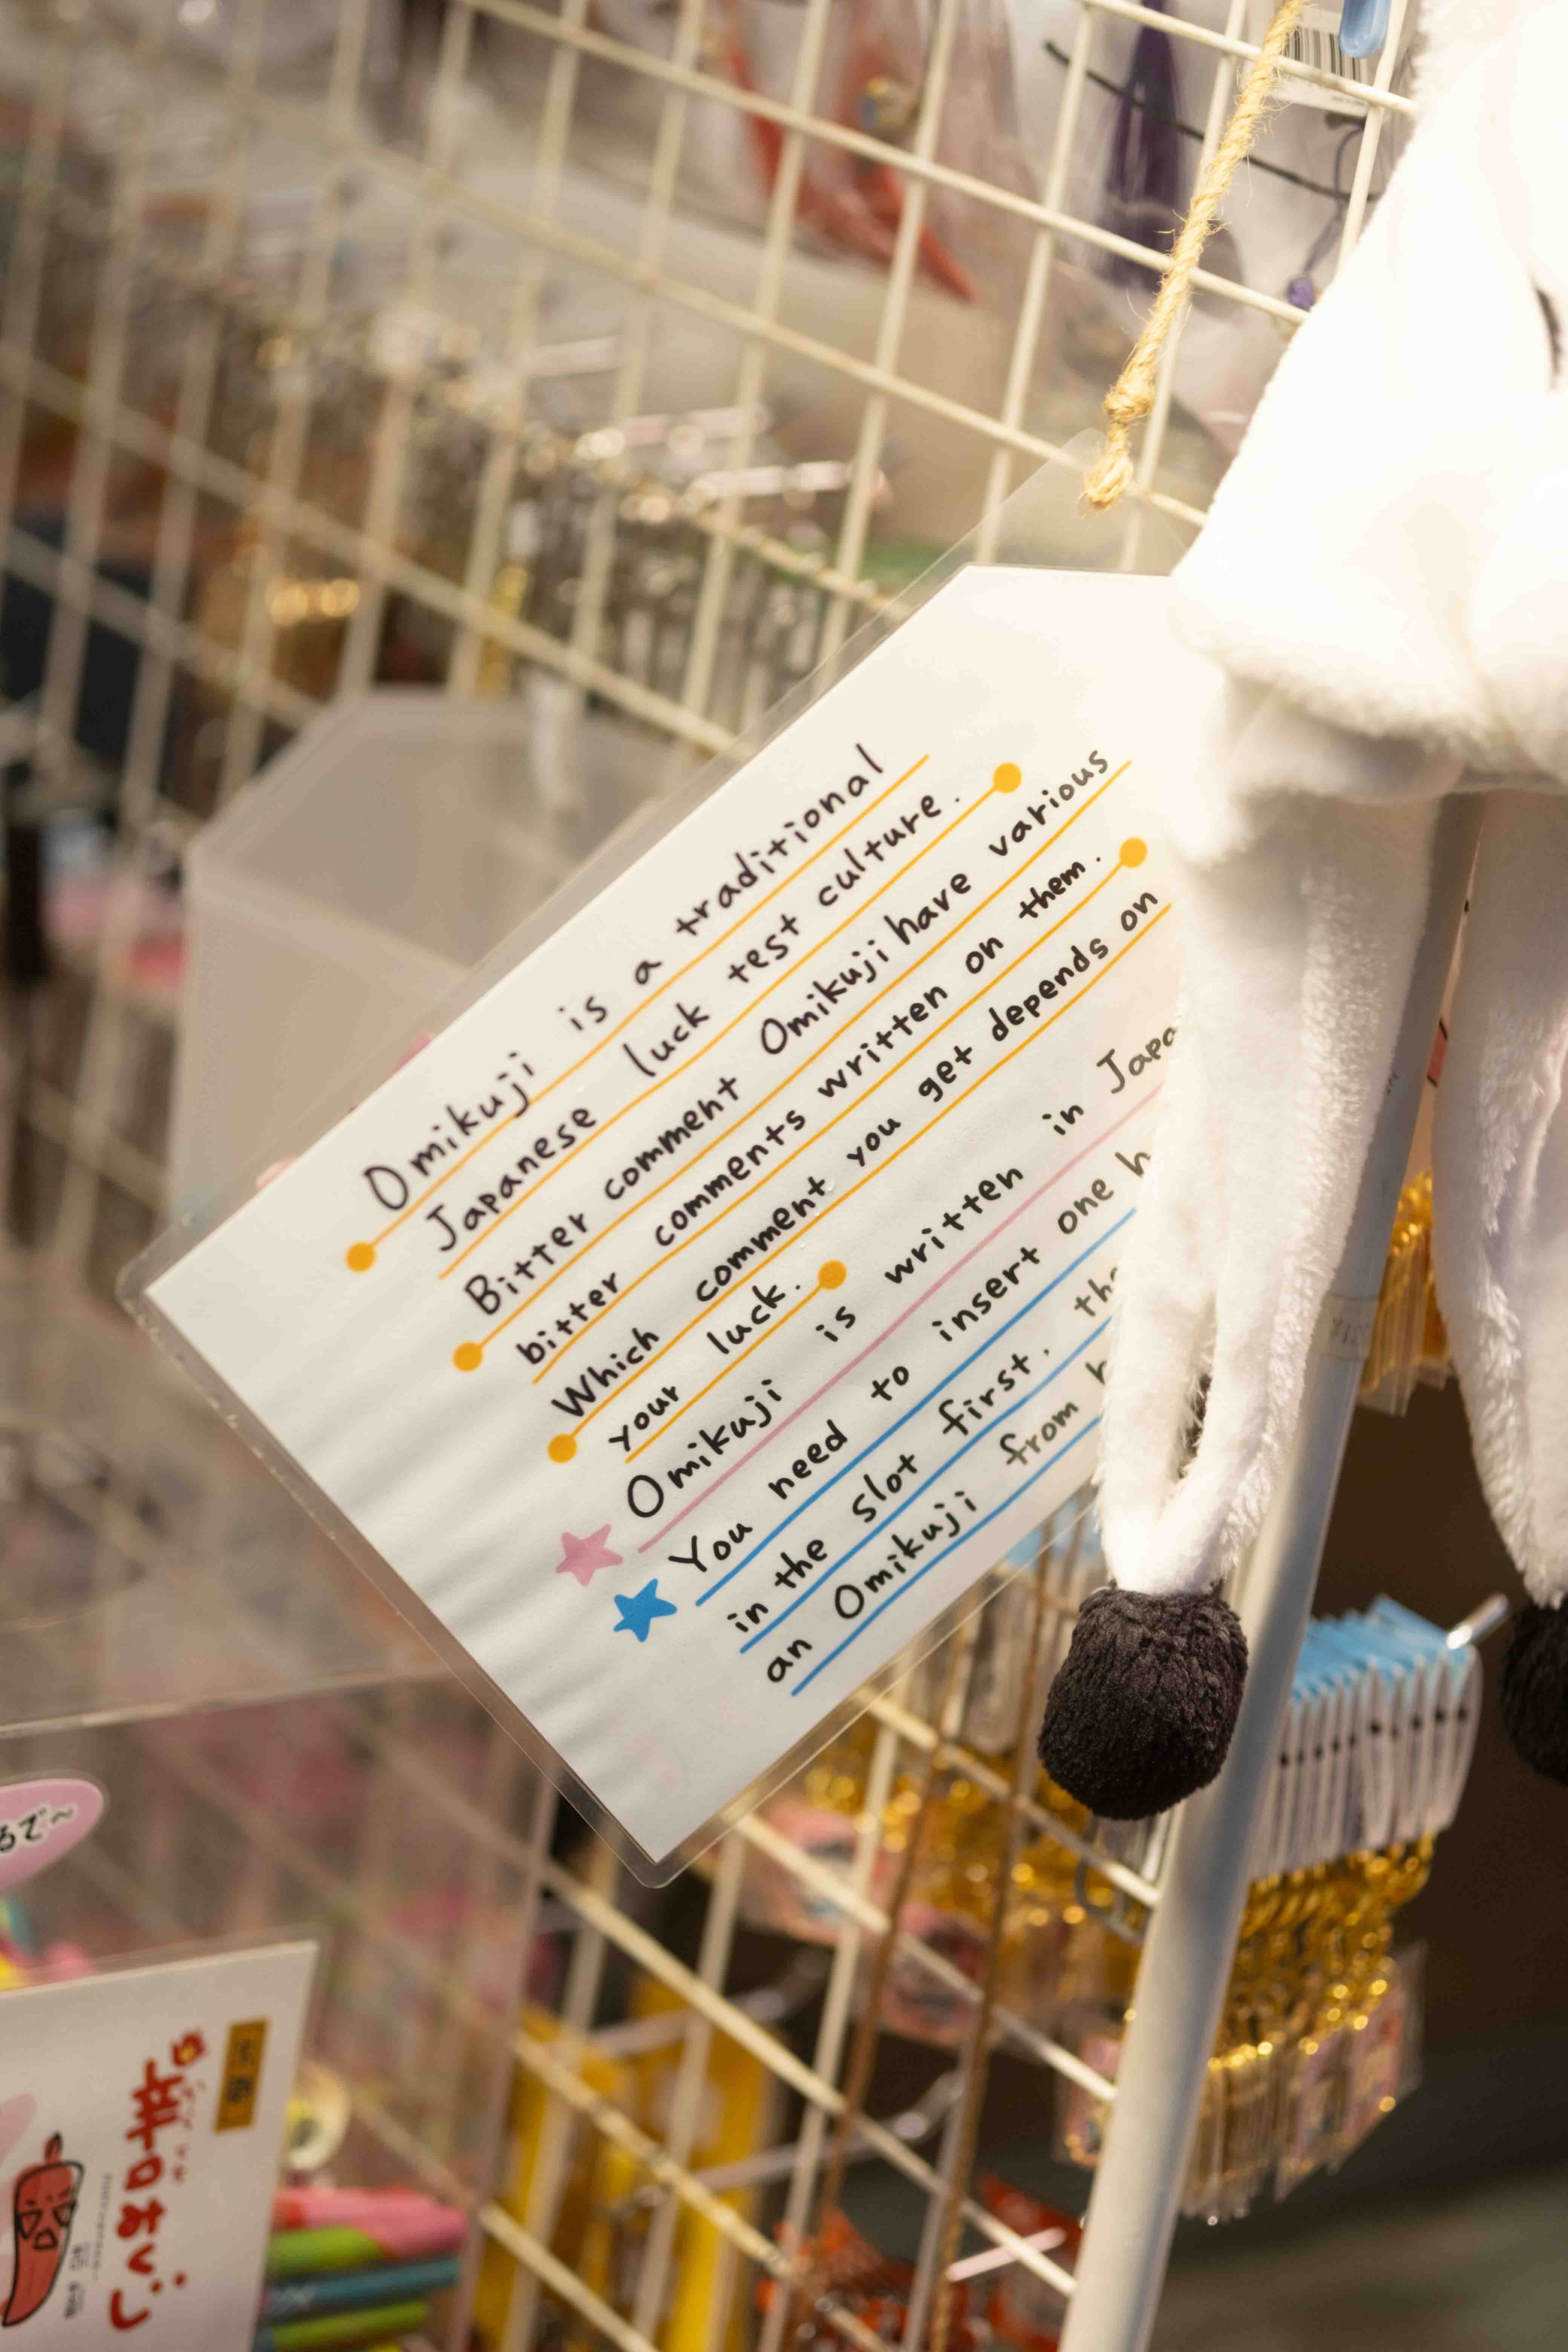 Omikuji is a traditional
Japanese luck test culture.
Bitter comment Omikuji have various
bitter comments written on them.
Which comment you get depends on
your luck.
Omikuji is written in
You need to insert one
in the slot first.
an Omikuji from
辛口おみくじ